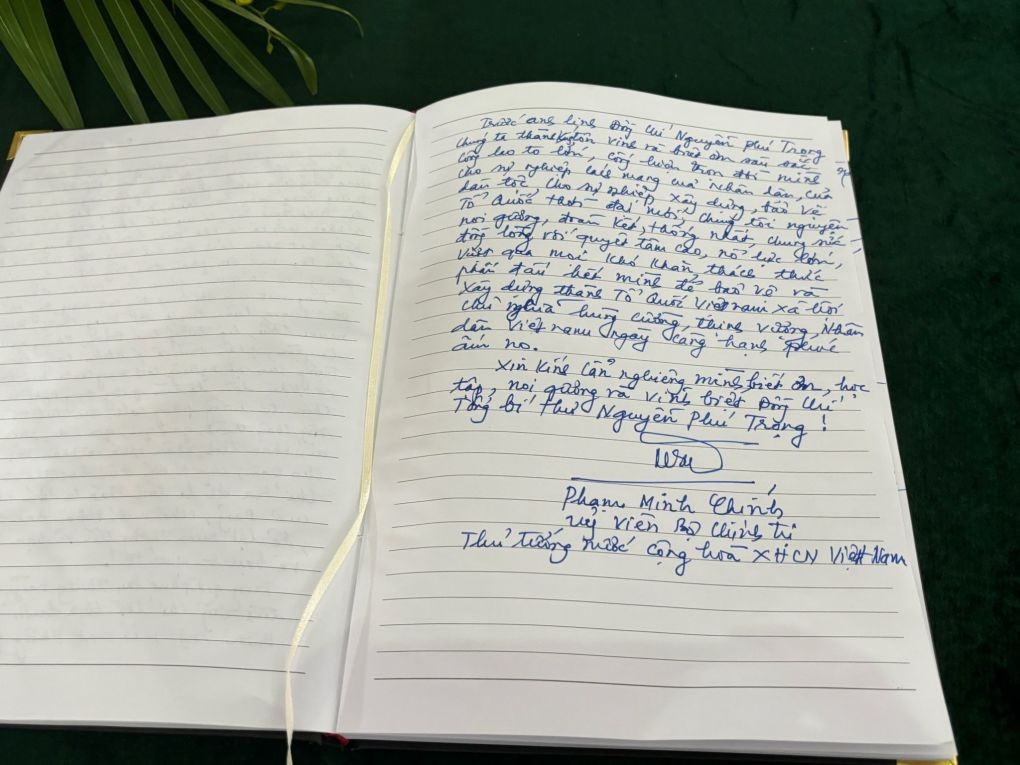 Trước anh linh Đồng Chí Nguyễn Phú Trọng
chúng ta thành kính tôn vinh và biết ơn sâu sắc
công lao to lớn, cống hiến trọn đời mình
cho sự nghiệp cách mạng của nhân dân, của
dân tộc, cho sự nghiệp xây dựng, bảo vệ
Tổ Quốc thời đại mới, chúng tôi nguyện
noi gương, đoàn kết, thống nhất, chung sức
đồng lòng với quyết tâm cao, nỗ lực lớn,
vượt qua mọi khó khăn, thách thức
phấn đấu hết mình để bảo vệ và
xây dựng thành Tổ Quốc Việt nam xã hội
chủ nghĩa hùng cường, thịnh vượng, Nhân
dân Việt nam ngày càng hạnh phúc
ấm no.
Xin kính cẩn nghiêng mình biết ơn, học
tập, noi gương và vĩnh biệt Đồng Chí
Tổng bí thư Nguyễn Phú Trọng !
Phạm Minh Chính
Uỷ viên Bộ Chính trị
Thủ tướng nước cộng hoà XHCN Việt Nam